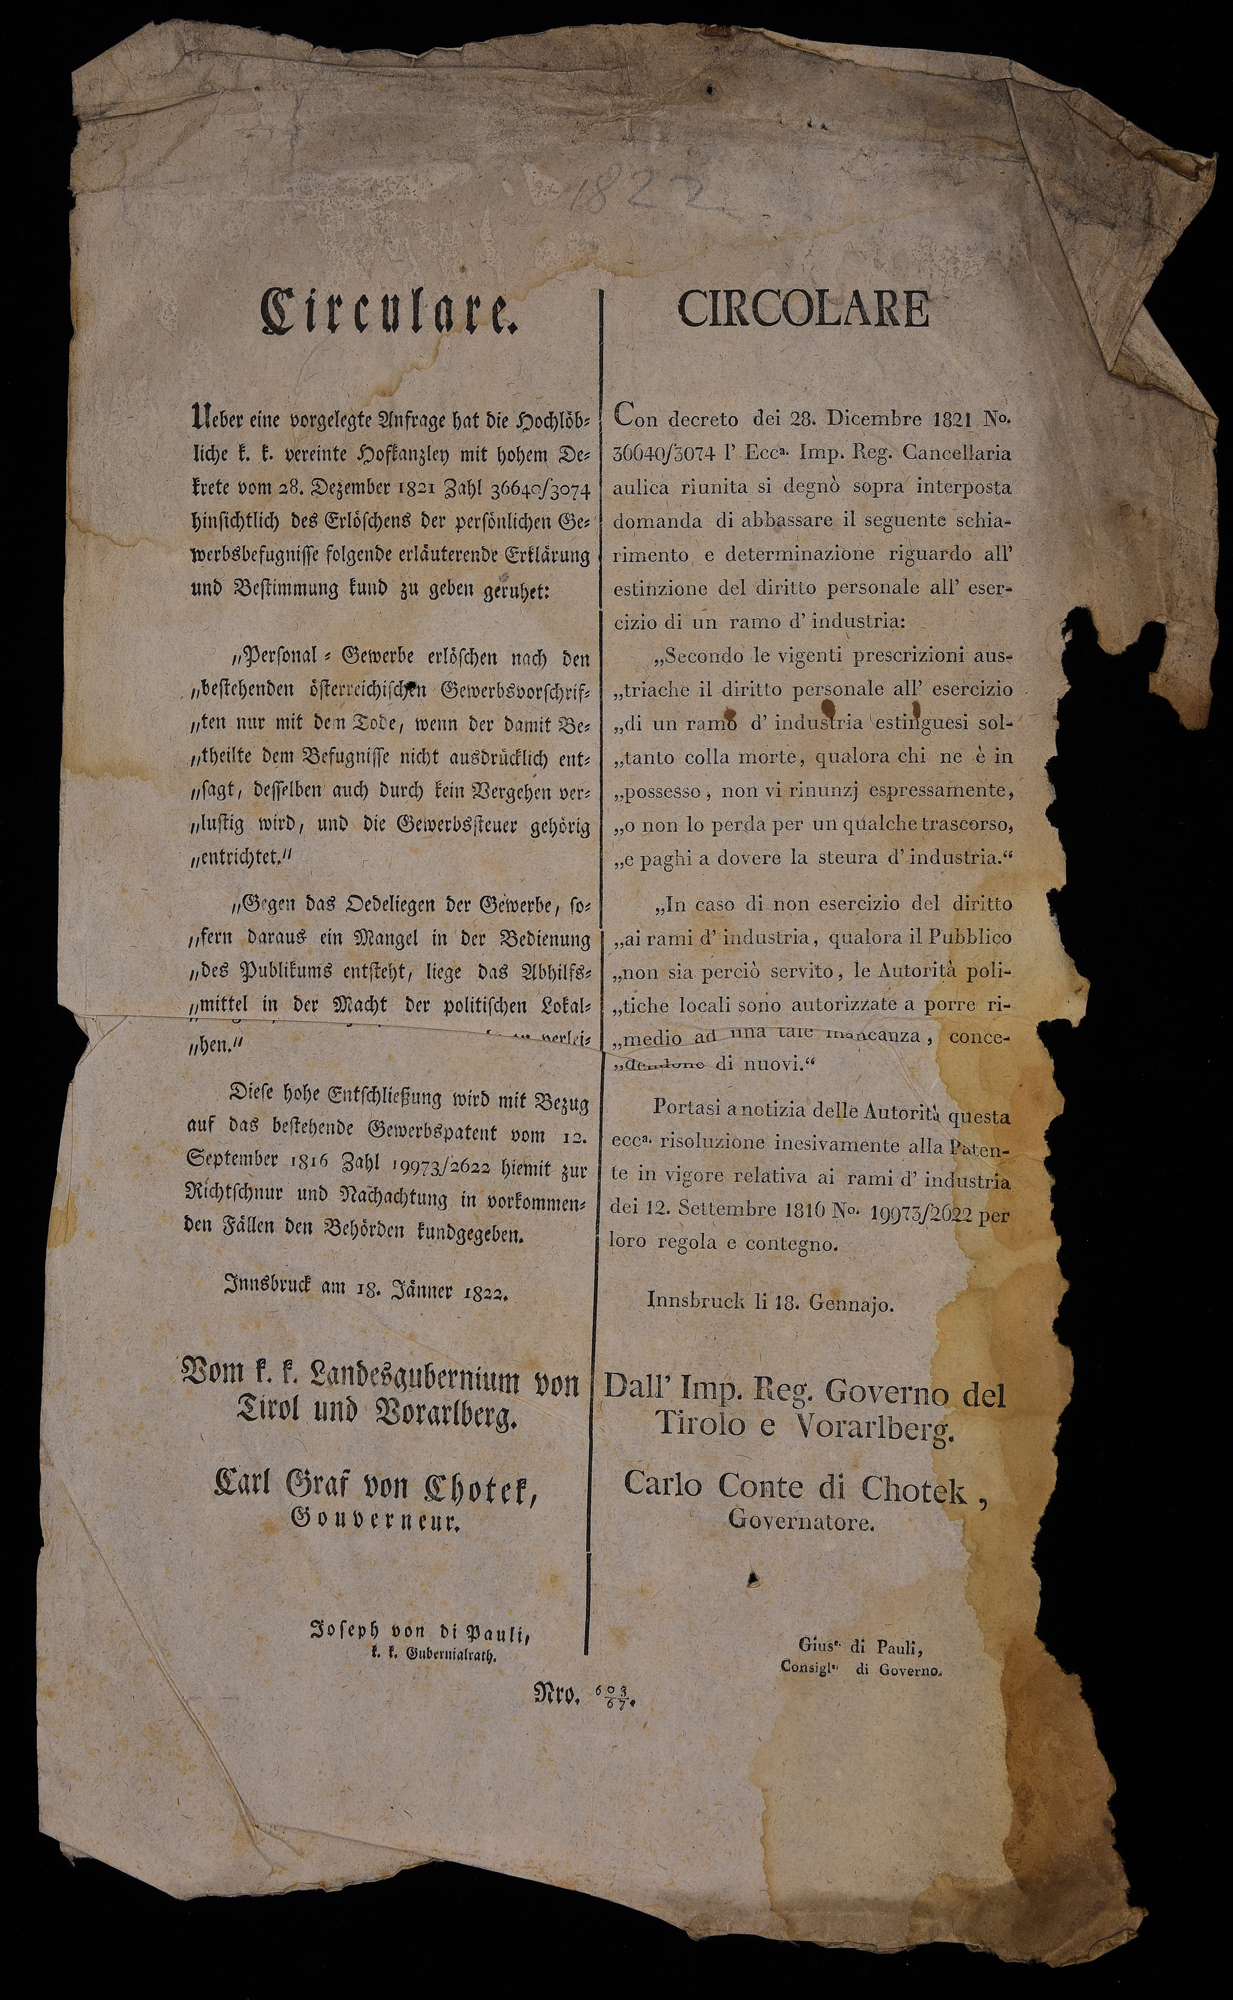 1822
Circulare.
Ueber eine vorgelegte Anfrage hat die Hochlöb⸗
liche k. k. vereinte Hofkanzley mit hohem De⸗
krete vom 28. Dezember 1821 Zahl 36640/3074
hinsichtlich des Erlöschens der persönlichen Ge⸗
werbsbefugnisse folgende erläuterende Erklärung
und Bestimmung kund zu geben geruhet:
„Personal⸗Gewerbe erlöschen nach den
„bestehenden österreichischen Gewerbsvorschrif⸗
„ten nur mit dem Tode, wenn der damit Be⸗
„theilte dem Befugnisse nicht ausdrücklich ent⸗
„sagt, desselben auch durch kein Vergehen ver⸗
„lustig wird, und die Gewerbssteuer gehörig
„entrichtet.“
„Gegen das Oedeliegen der Gewerbe, so⸗
„fern daraus ein Mangel in der Bedienung
„des Publikums entsteht, liege das Abhilfs⸗
„mittel in der Macht der politischen Lokal⸗
verlei⸗
„hen.“
Diese hohe Entschließung wird mit Bezug
auf das bestehende Gewerbspatent vom 12.
September 1816 Zahl 19973/2622 hiemit zur
Richtschnur und Nachachtung in vorkommen⸗
den Fällen den Behörden kundgegeben.
Innsbruck am 18. Jänner 1822.
Vom k. k. Landesgubernium von
Tirol und Vorarlberg.
Carl Graf von Chotek,
Gouverneur.
Joseph von di Pauli,
k. k. Gubernialrath.
CIRCOLARE
Con decreto dei 28. Dicembre 1821 No.
36640/3074 l' Ecca. Imp. Reg. Cancellaria
aulica riunita si degnò sopra interposta
domanda di abbassare il seguente schia-
rimento e determinazione riguardo all'
estinzione del diritto personale all' eser-
cizio di un ramo d' industria:
„Secondo le vigenti prescrizioni aus-
„triache il diritto personale all' esercizio
„di un ramo d' industria estinguesi sol-
„tanto colla morte, qualora chi ne è in
„possesso, non vi rinunzj espressamente,
„o non lo perda per un qualche trascorso,
„e paghi a dovere la steura d' industria.“
„In caso di non esercizio del diritto
„ai rami d' industria, qualora il Pubblico
„non sia perciò servito, le Autorità poli-
„tiche locali sono autorizzate a porre ri-
„medio ad una tale mancanza, conce-
„dendone di nuovi.“
Portasi a notizia delle Autorità questa
ecca. risoluzione inesivamente alla Paten-
te in vigore relativa ai rami d' industria
dei 12. Settembre 1816 No. 19973/2622 per
loro regola e contegno.
Innsbruck li 18. Gennajo.
Dall' Imp. Reg. Governo del
Tirolo e Vorarlberg.
Carlo Conte di Chotek,
Governatore.
Giuse. di Pauli,
Consiglre. di Governo.
Nro. 603/67.